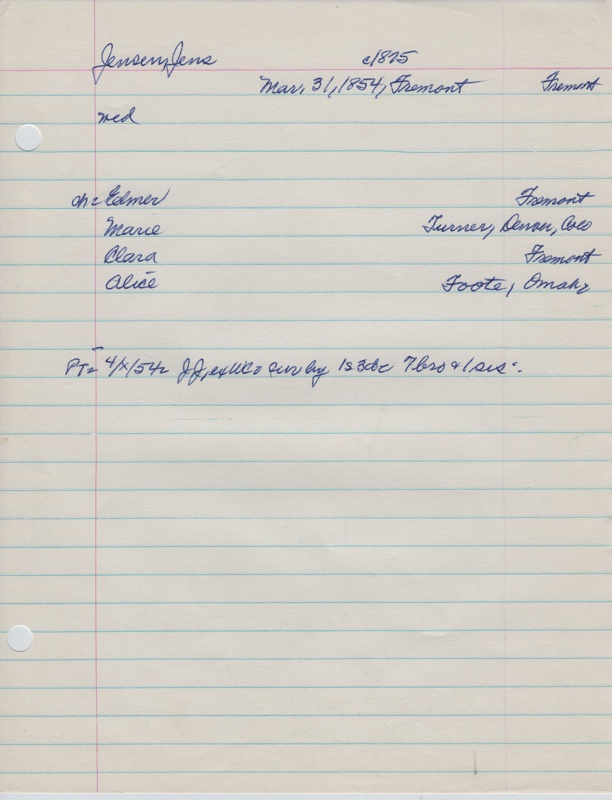 Jensen, Jens c1875
Mar, 31, 1854, Fremont Fremont
wed
ch= Elmer Fremont
Marie Turner, Denver, Colo
Clara Fremont
Alice Foote, Omaha
PT= 4/x/54= JJ, ex WC= surv by 1s 3d= 7 bro & 1 sis.